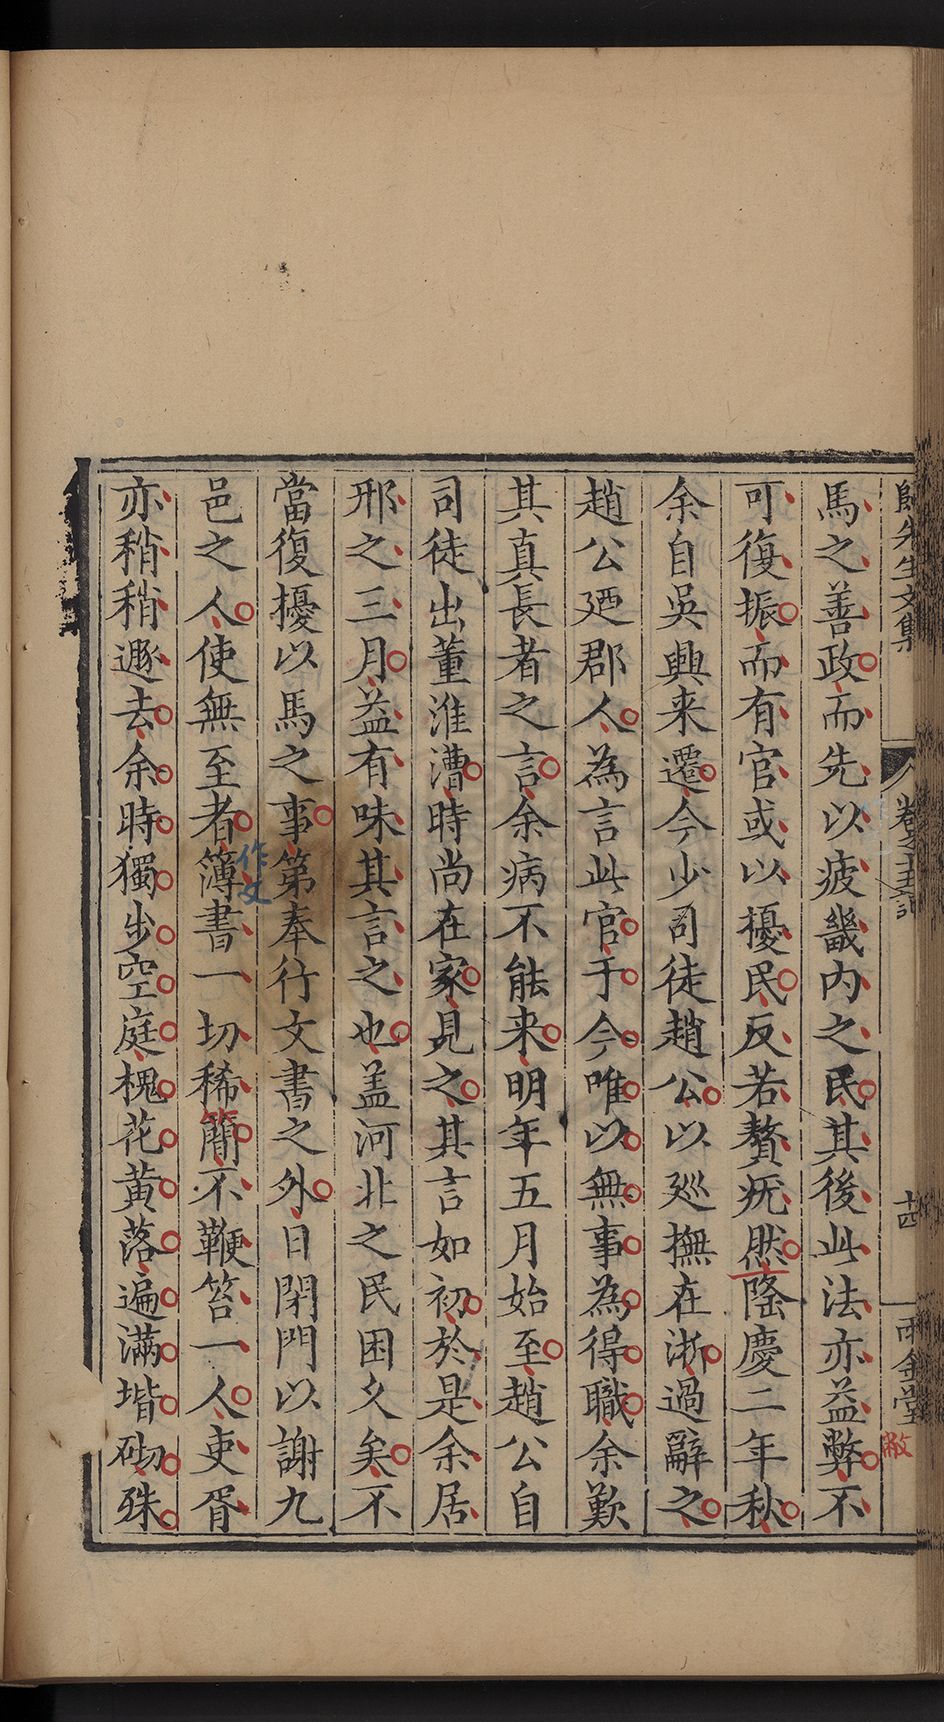 師先生文集
卷之十五記
十四
雨金堂
敝
馬之善政而先以疲畿内之民其後此法亦益弊不
可復振而有官或以擾民反若贅疣然隆慶二年秋
余自吳興来遷今少司徒趙公以廵撫在浙過辭之
趙公廼郡人為言此官于今唯以無事為得職余歎
其真長者之言余病不能来明年五月始至趙公自
司徒出董淮漕時尚在家見之其言如初於是余居
邢之三月益有味其言之也盖河北之民困乆矣不
當復擾以馬之事第奉行文書之外日閉門以謝九
作文
邑之人使無至者簿書一切稀簡不鞭笞一人吏胥
簡
亦稍稍遯去余時獨步空庭槐花黄落遍滿堦砌殊